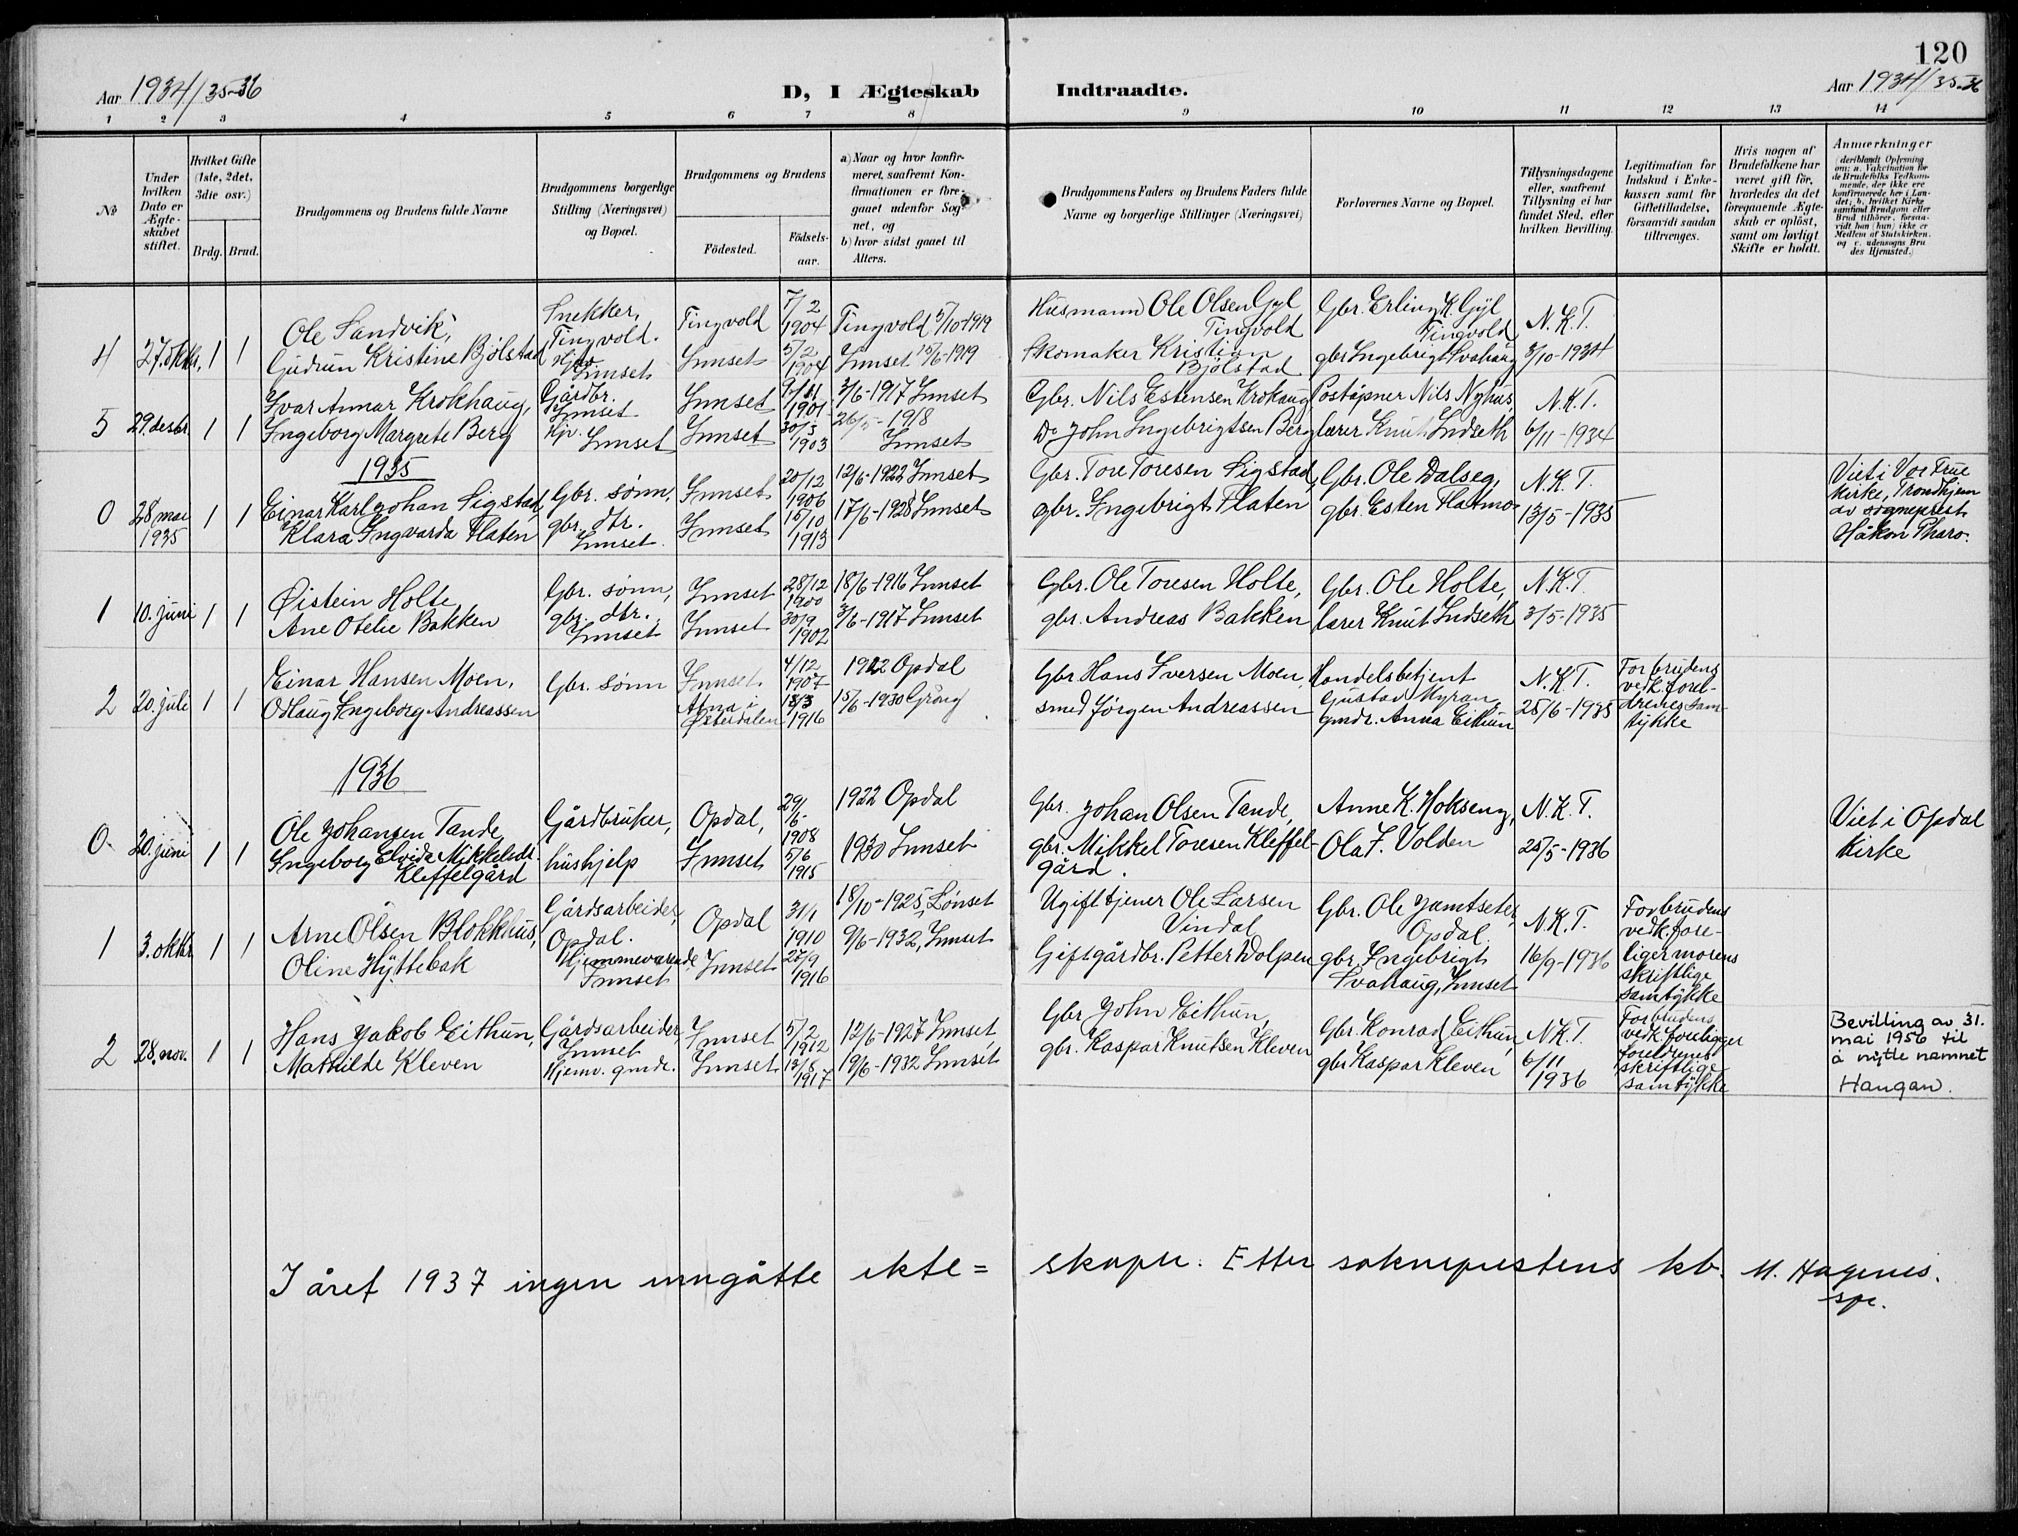 120
Aar 1934/35-36
D, I Ægteskab Indtraadte.
Aar 1934/35-36
1 2 3 4 5 6 7 8 9 10 11 12 13 14
No
Under hvilken Dato er Ægteskabet stiftet.
Hvilket Gifte (1ste, 2det, 3die osv.)
Brdg. Brud.
Brudgommens og Brudens fulde Navne
Brudgommens borgerlige Stilling (Næringsvei) og Bopæl.
Brudgommens og Brudens
Födested.
Födsels-aar.
a) Naar og hvor konfirmeret, saafremt Konfirmationen er foregaaet udenfor Sognet, og
b) hvor sidst gaaet til Alters.
Brudgommens Faders og Brudens Faders fulde Navne og borgerlige Stillinger (Næringsvei)
Forlovernes Navne og Bopæl.
Tillysningsdagene eller, saafremt Tillysning ei har fundet Sted, efter hvilken Bevilling.
Legitimation for Indskud i Enkekassen samt for Giftetilladelse, forsaavidt saadan tiltrænges.
Hvis nogen af Brudefolkene har været gift för, hvorledes da det foregaaende Ægteskab er oplöst, samt om lovligt Skifte er holdt.
Anmærkninger
(deriblandt Oplysning om: a. Vakcination for de Brudefolks Vedkommende, der ikke ere konfirmerede her i Landet; b. hvilket Kirkesamfund Brudgom eller Brud tilhörer, forsaavidt han (hun) ikke er Medlem af Statskirken, og c. udensogns Brudes Hjemsted.)
4 27. oktbr. 1 1
Ole Sandvik,
Gudrun Kristine Bjølstad
Snekker,
Tingvold.
Hjv.
Innset
Tingvold
Innset
7/2 1904
5/2 1904
Tingvold 5/10 1919
Innset 15/6-1919
Husmann Ole Olsen Gyl
Tingvold
Skomaker Kristian
Bjølstad
Gbr. Erling K. Gyl
Tingvold
gbr Ingebrigt Svahaug
N.K.T.
3/10-1934
5 29. desbr. 1 1
Ivar Annar Krokhaug,
Ingeborg Margrete Berg
Gårdbr.
Innset
Hjv. Innset
Innset
Innset
9/11 1901
30/3 1903
3/6-1917 Innset
26/5-1918
Innset
Gbr. Nils Estensen Krokaug
Do John Ingebrigtsen Berg
Poståpner Nils Nyhus,
lærer Knut Indseth
N.K.T.
6/11-1934
1935
0 28. mai 1935 1 1
Einar Karl Johan Sigstad,
Klara Ingvarda Flaten
Gbr. sønn,
gbr. dtr.
Innset
Innset
Innset
20/12 1906
15/10 1913
12/6-1922 Innset
17/6-1928 Innset
Gbr. Tore Toresen Sigstad,
gbr. Ingebrigt Flaten
Gbr. Ole Dalseg,
gbr. Esten Flatmo
N.K.T.
13/5-1935
Viet i Vor Frue
kirke, Trondhjem
av sogneprest
Håkon Pharo.
1 10. juni 1 1
Øistein Holte
Ane Otelie Bakken
Gbr. sønn,
gbr. dtr.
Innset
Innset
Innset
28/12 1900
30/9 1902
18/6-1916 Innset
3/6-1917 Innset
Gbr. Ole Toresen Holte,
gbr. Andreas Bakken
Gbr. Ole Holte,
lærer Knut Indseth
N.K.T.
3/5-1935
2 20. juli 1 1
Einar Hansen Moen,
Odlaug Ingeborg Andreassen
Gbr. sønn
Innset.
Atna i
Østerdalen
4/12 1907
18/3 1916
1922 Opdal
15/6-1930 Grong
Gbr Hans Iversen Moen,
smed Jørgen Andreassen
Handelsbetjent
Gustav Myran,
gmdr. Anna Eithun
N.K.T.
25/6-1935
For brudens
vedk. forel-
drenes sam-
tykke
1936
0 20. juni 1 1
Ole Johansen Tande,
Ingeborg Elvida Mikkelsdt.
Kleffelgård
Gårdbruker,
hushjelp
Opdal,
Innset
29/6- 1908
5/6 1915
1922 Opdal
1930 Innset
Gbr. Johan Olsen Tande,
gbr. Mikkel Toresen Kleffel-
gård.
Anne K. Hokseng,
Ola F. Volden
N.K.T.
25/5-1936
Viet i Opdal
kirke
1 3. oktbr. 1 1
Arne Olsen Blokkhus,
Oline Hyttebak
Gårdsarbeider,
Opdal.
Hjemmeværende
Innset
Opdal
Innset
31/1 1910
25/9 1916
18/10-1925, Lønset
9/6-1932, Innset
Ugift tjener Ole Larsen
Vindal
Gift gårdbr. Petter Dolpen
Gbr. Ole Jamtseter,
Opdal
gbr. Ingebrigt
Svahaug, Innset
N.K.T.
16/9-1936
For brudens
vedk. fore-
liger morens
skriftlige
samtykke
2 28. nov. 1 1
Hans Jakob Eithun,
Mathilde Kleven
Gårdsarbeider,
Innset
Hjemv. gmdr.
Innset
Innset
5/2 1912
13/8 1917
12/6-1927 Innset
19/6-1932 Innset
Gbr John Eithun,
gbr. Kaspar Knutsen Kleven
Gbr. Konrad Eithun,
gbr Kaspar Kleven
N.K.T.
6/11 1936
For brudens
vedk. foreligger
foreldrenes
skriftlige
samtykke
Bevilling av 31.
mai 1956 til
å nytte namnet
Haugan.
I året 1937 ingen inngåtte ekte= skaper. Etter sokneprestens kb. M. Hagenes.
spr.